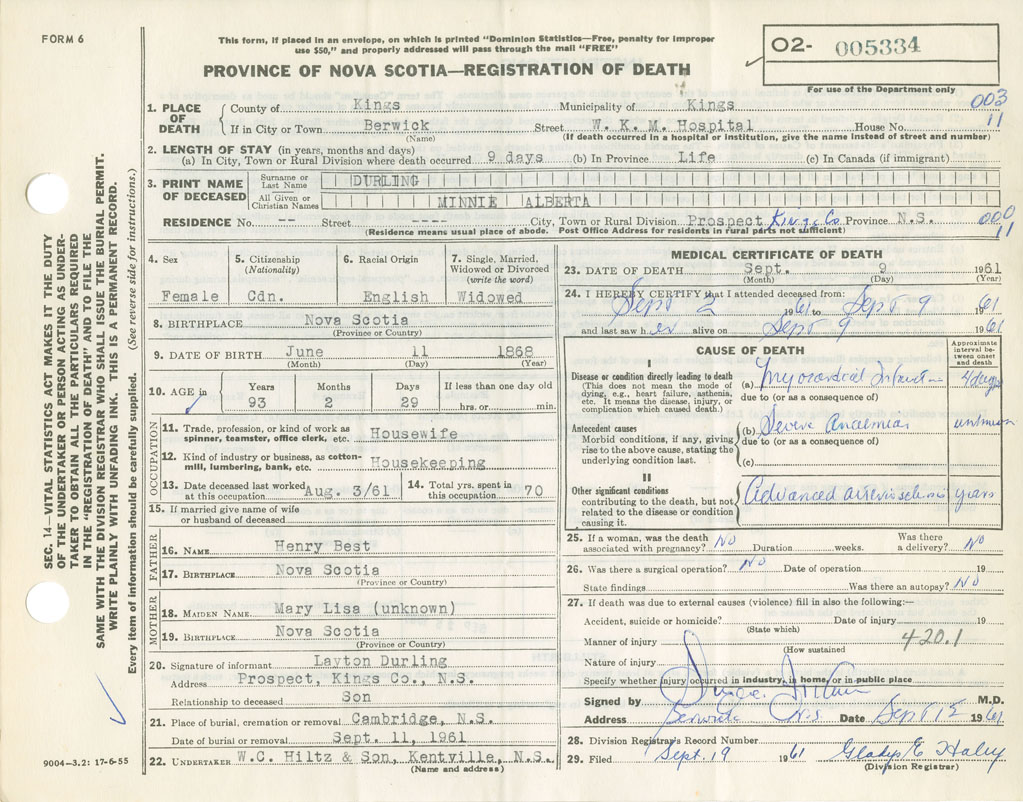 FORM 6
This form, if placed in an envelope, on which is printed "Dominion Statistics—Free, penalty for improper
use $50," and properly addressed will pass through the mail "FREE"
PROVINCE OF NOVA SCOTIA—REGISTRATION OF DEATH
O2- 005334
For use of the Department only
003
11
1. PLACE OF DEATH
County of Kings Municipality of Kings
If in City or Town Berwick Street W. K. M. Hospital House No.
(Name) (If death occurred in a hospital or institution, give the name instead of street and number)
2. LENGTH OF STAY (in years, months and days)
(a) In City, Town or Rural Division where death occurred 9 days (b) In Province Life (c) In Canada (if immigrant)
3. PRINT NAME OF DECEASED
Surname or Last Name DURLING
All Given or Christian Names MINNIE ALBERTA
RESIDENCE No. -- Street ---- City, Town or Rural Division Prospect Kings Co Province N.S.
(Residence means usual place of abode. Post Office Address for residents in rural parts not sufficient)
000
11
4. Sex
Female
5. Citizenship
(Nationality)
Cdn.
6. Racial Origin
English
7. Single, Married,
Widowed or Divorced
(write the word)
Widowed
8. BIRTHPLACE Nova Scotia
(Province or Country)
9. DATE OF BIRTH June 11 1868
(Month) (Day) (Year)
10. AGE in
Years Months Days If less than one day old
93 2 29 hrs. or min.
OCCUPATION
11. Trade, profession, or kind of work as
spinner, teamster, office clerk, etc. Housewife
12. Kind of industry or business, as cotton-
mill, lumbering, bank, etc. Housekeeping
13. Date deceased last worked
at this occupation Aug. 3/61
14. Total yrs. spent in
this occupation 70
15. If married give name of wife
or husband of deceased
FATHER
16. NAME Henry Best
17. BIRTHPLACE Nova Scotia
(Province or Country)
MOTHER
18. MAIDEN NAME Mary Lisa (unknown)
19. BIRTHPLACE Nova Scotia
(Province or Country)
20. Signature of informant Layton Durling
Address Prospect, Kings Co., N.S.
Relationship to deceased Son
21. Place of burial, cremation or removal Cambridge, N.S.
Date of burial or removal Sept. 11, 1961
22. UNDERTAKER W.C. Hiltz & Son, Kentville, N.S.
(Name and address)
MEDICAL CERTIFICATE OF DEATH
23. DATE OF DEATH Sept. 9 1961
(Month) (Day) (Year)
24. I HEREBY CERTIFY that I attended deceased from:
Sept 2 1961 to Sept 9 1961
and last saw her alive on Sept 9 1961
CAUSE OF DEATH
Approximate
interval be-
tween onset
and death
I
Disease or condition directly leading to death
(This does not mean the mode of
dying, e.g., heart failure, asthenia,
etc. It means the disease, injury, or
complication which caused death.)
(a) Myocardial Infarction 4 days
due to (or as a consequence of)
Antecedent causes
Morbid conditions, if any, giving
rise to the above cause, stating the
underlying condition last.
(b) Severe Anaemia unknown
due to (or as a consequence of)
(c)
II
Other significant conditions
contributing to the death, but not
related to the disease or condition
causing it.
Advanced arteriosclerosis years
25. If a woman, was the death
associated with pregnancy? No Duration weeks. Was there
a delivery? No
26. Was there a surgical operation? No Date of operation 19
State findings Was there an autopsy? No
27. If death was due to external causes (violence) fill in also the following:—
Accident, suicide or homicide? Date of injury 19
(State which)
Manner of injury 420.1
(How sustained
Nature of injury
Specify whether injury occurred in industry, in home, or in public place
Signed by M.D.
Address Berwick N.S. Date Sept 12 1961
28. Division Registrar's Record Number
29. Filed Sept. 19 1961 Gladys E Haley
(Division Registrar)
SEC. 14—VITAL STATISTICS ACT MAKES IT THE DUTY
OF THE UNDERTAKER OR PERSON ACTING AS UNDER-
TAKER TO OBTAIN ALL THE PARTICULARS REQUIRED
IN THE "REGISTRATION OF DEATH" AND TO FILE THE
SAME WITH THE DIVISION REGISTRAR WHO SHALL ISSUE THE BURIAL PERMIT.
WRITE PLAINLY WITH UNFADING INK. THIS IS A PERMANENT RECORD.
Every item of information should be carefully supplied. (See reverse side for instructions.)
9004—3.2: 17-6-55